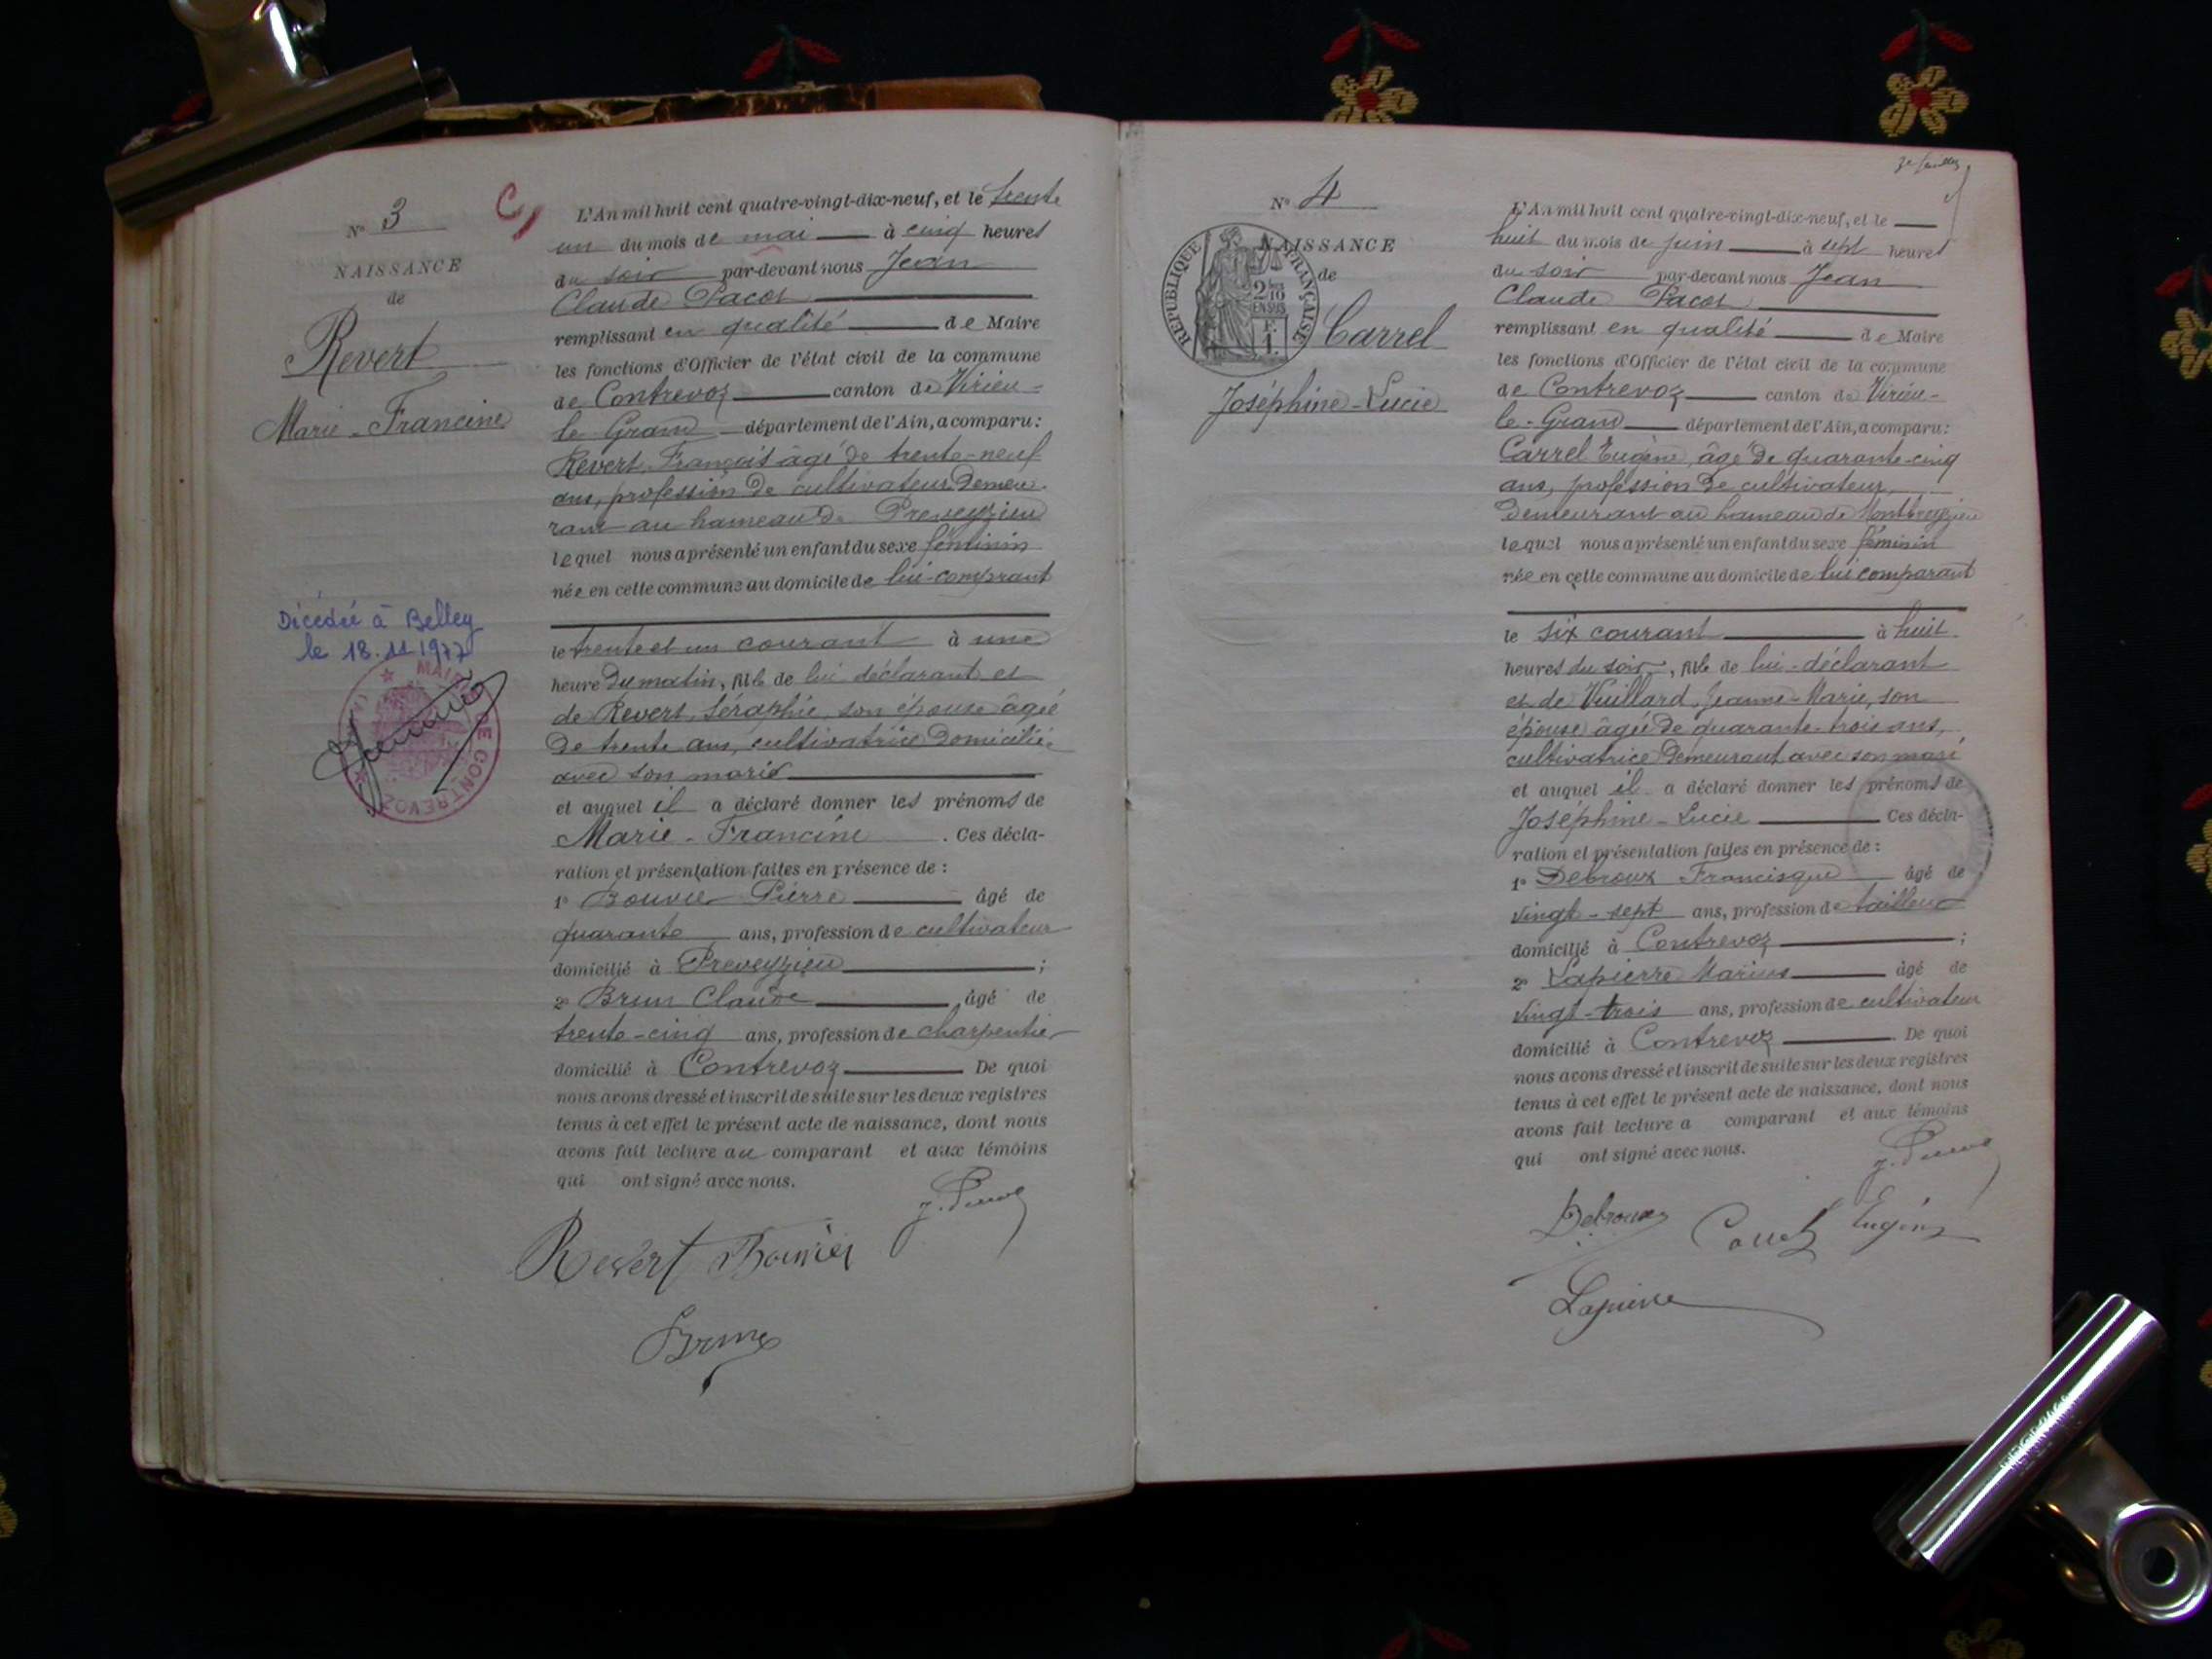 N° 3
NAISSANCE
de
Revert
Marie-Francine
Décédée à Belley
le 18.11.1977
MAIRIE DE CONTREVOZ
L'An mil huit cent quatre-vingt-dix-neuf, et le trente
un du mois de mai à cinq heures
du soir par-devant nous Jean
Claude Pacot
remplissant en qualité de Maire
les fonctions d'Officier de l'état civil de la commune
de Contrevoz canton de Virieu-
le Grand département de l'Ain, a comparu:
Revert François âgé de trente-neuf
ans, profession de cultivateur demeu-
rant au hameau de Preveyzieu
lequel nous a présenté un enfant du sexe féminin
née en cette commune au domicile de lui-comprant
le trente et un courant à une
heure du matin, fille de lui déclarant et
de Revert Séraphie, son épouse âgée
de trente ans, cultivatrice domiciliée
avec son marie
et auquel il a déclaré donner les prénoms de
Marie-Francine. Ces décla-
ration et présentation faites en présence de :
1° Bouvier Pierre âgé de
quarante ans, profession de cultivateur
domicilié à Preveyzieu ;
2° Brun Claude âgé de
trente-cinq ans, profession de charpentier
domicilié à Contrevoz De quoi
nous avons dressé et inscrit de suite sur les deux registres
tenus à cet effet le présent acte de naissance, dont nous
avons fait lecture au comparant et aux témoins
qui ont signé avec nous.
Revert Bouvier
Brun
N° 4
NAISSANCE
de
REPUBLIQUE FRANÇAISE
2/10
EN SUS
Carrel
Joséphine-Lucie
L'An mil huit cent quatre-vingt-dix-neuf, et le
huit du mois de juin à sept heures
du soir par-devant nous Jean
Claude Pacot
remplissant en qualité de Maire
les fonctions d'Officier de l'état civil de la commune
de Contrevoz canton de Virieu-
le-Grand département de l'Ain, a comparu:
Carrel Eugène, âgé de quarante-cinq
ans, profession de cultivateur,
demeurant au hameau de Montbreyzieu
lequel nous a présenté un enfant du sexe féminin
née en cette commune au domicile de lui comparant
le six courant à huit
heures du soir, fille de lui-déclarant
et de Vuillard Jeanne-Marie, son
épouse âgée de quarante-trois ans,
cultivatrice demeurant avec son mari
et auquel il a déclaré donner les prénoms de
Joséphine-Lucie Ces décla-
ration et présentation faites en présence de :
1° Debroux Francisque âgé de
vingt-sept ans, profession de tailleur
domicilié à Contrevoz ;
2° Lapierre Marius âgé de
vingt-trois ans, profession de cultivateur
domicilié à Contrevoz. De quoi
nous avons dressé et inscrit de suite sur les deux registres
tenus à cet effet le présent acte de naissance, dont nous
avons fait lecture a comparant et aux témoins
qui ont signé avec nous.
Debroux Carrel Eugène
Lapierre